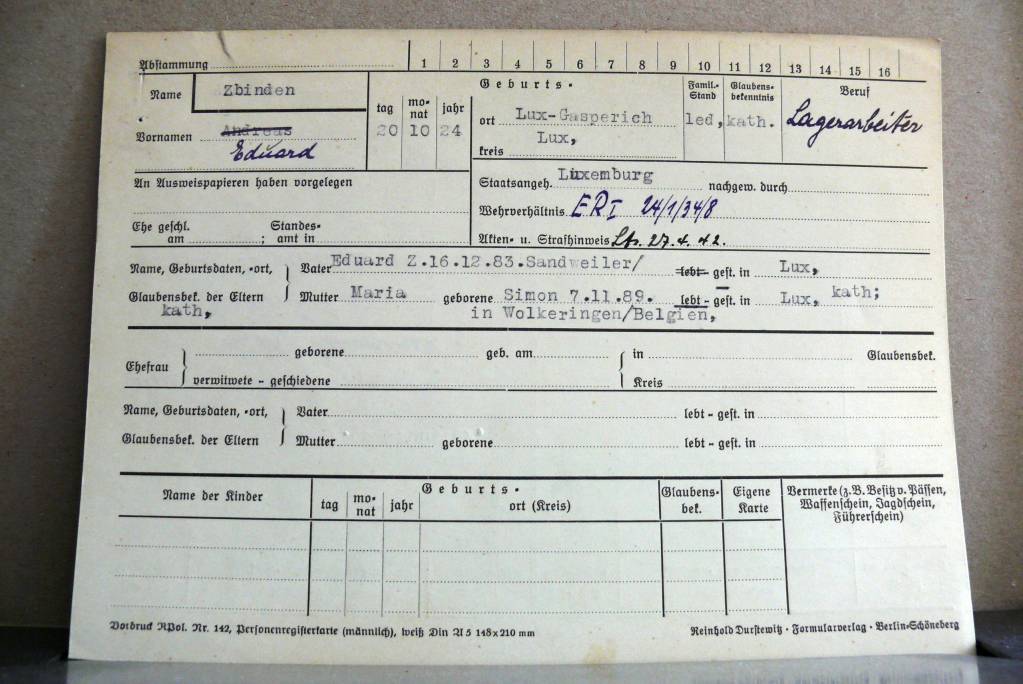 Abstammung 1 2 3 4 5 6 7 8 9 10 11 12 13 14 15 16
Name Zbinden
Vornamen Andreas
Eduard
tag monat jahr
20 10 24
Geburts-
ort Lux-Gasperich
Lux,
kreis
Famil.-Stand
led,
Glaubensbekenntnis
kath.
Beruf
Lagerarbeiter
An Ausweispapieren haben vorgelegen
Staatsangeh. Luxemburg nachgew. durch
Wehrverhältnis ERI 24/1/34/8
Ehe geschl. am ; Standesamt in
Akten- u. Strafhinweis 27.4.42.
Name, Geburtsdaten, -ort, Vater Eduard Z.16.12.83.Sandweiler/ lebt- gest. in Lux,
Glaubensbek. der Eltern Mutter Maria geborene Simon 7.11.89. lebt - gest. in Lux, kath;
kath, in Wolkeringen/Belgien,
Ehefrau geborene geb. am in Glaubensbek.
verwitwete - geschiedene Kreis
Name, Geburtsdaten, -ort, Vater lebt - gest. in
Glaubensbek. der Eltern Mutter geborene lebt - gest. in
Name der Kinder
Geburts-
tag monat jahr ort (Kreis)
Glaubensbek.
Eigene Karte
Vermerke (z.B. Besitz v. Pässen,
Waffenschein, Jagdschein,
Führerschein)
Vordruck RPol. Nr. 142, Personenregisterkarte (männlich), weiß Din A 5 148 x 210 mm
Reinhold Durstewitz · Formularverlag · Berlin-Schöneberg